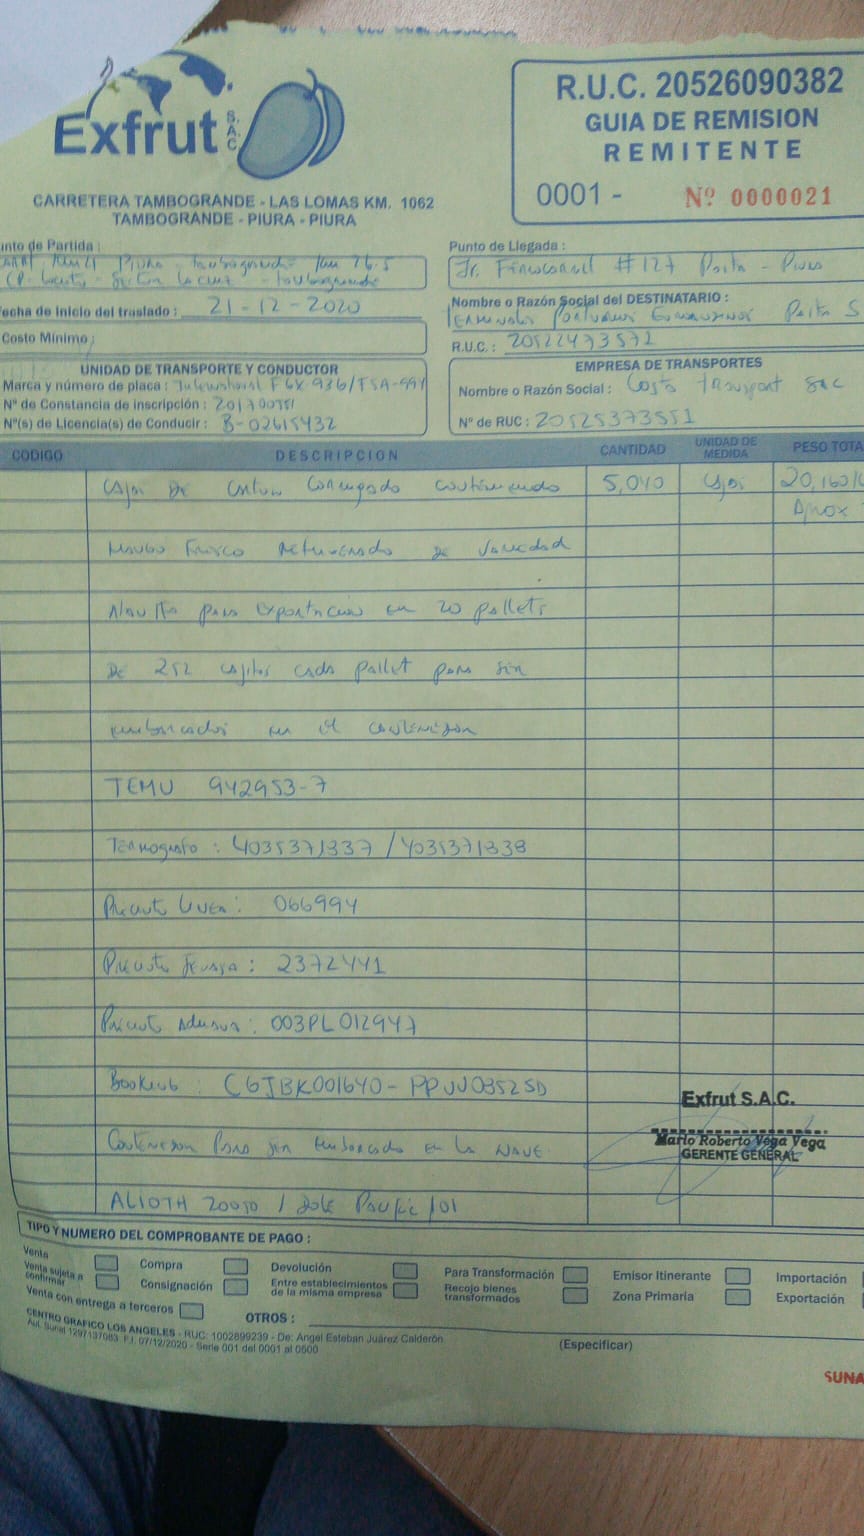 Exfrut S.A.C
CARRETERA TAMBOGRANDE - LAS LOMAS KM. 1062
TAMBOGRANDE - PIURA - PIURA
R.U.C. 20526090382
GUIA DE REMISION
REMITENTE
0001 - Nº 0000021
unto de Partida :
Piura - Tambogrande Km 26.5
Tambogrande
Punto de Llegada :
Jr. Ferrocarril #127 Paita - Piura
echa de Inicio del traslado : 21-12-2020
Nombre o Razón Social del DESTINATARIO :
Terminales Portuarios Euroandinos Paita S
Costo Mínimo :
R.U.C. : 20522473571
UNIDAD DE TRANSPORTE Y CONDUCTOR
Marca y número de placa : International F6X 936/TSA-991
Nº de Constancia de inscripción :
Nº(s) de Licencia(s) de Conducir : B-02615432
EMPRESA DE TRANSPORTES
Nombre o Razón Social : Costa Transport SAC
Nº de RUC : 20525373551
CODIGO DESCRIPCION CANTIDAD UNIDAD DE MEDIDA PESO TOTA
Cajas de Carton Corrugado conteniendo 5,040 Cajas 20,160
Aprox
Mango Fresco Refrigerado de Variedad
para exportación en 20 pallets
de 252 cajitas cada pallet para ser
embarcados en el contenedor
TEMU 942953-7
Termografo : 4035371337 / 4035371338
Precinto Linea : 066994
Precinto Senasa : 2372441
Precinto Aduana : 003PL012947
Booking : C6JBK001640 - PPUV03525D
Contenedor Para ser embarcado en la NAVE
ALIOTH / Dole Pacific /01
Exfrut S.A.C.
Mario Roberto Vega Vega
GERENTE GENERAL
TIPO Y NUMERO DEL COMPROBANTE DE PAGO :
Venta
Compra
Devolución
Para Transformación
Emisor Itinerante
Importación
Venta sujeta a confirmar
Consignación
Entre establecimientos de la misma empresa
Recojo bienes transformados
Zona Primaria
Exportación
Venta con entrega a terceros
OTROS :
(Especificar)
CENTRO GRAFICO LOS ANGELES - RUC: 1002899239 - De: Angel Esteban Juárez Calderón
Aut. Sunat 1297137083 F.I. 07/12/2020 - Serie 001 del 0001 al 0500
SUNA